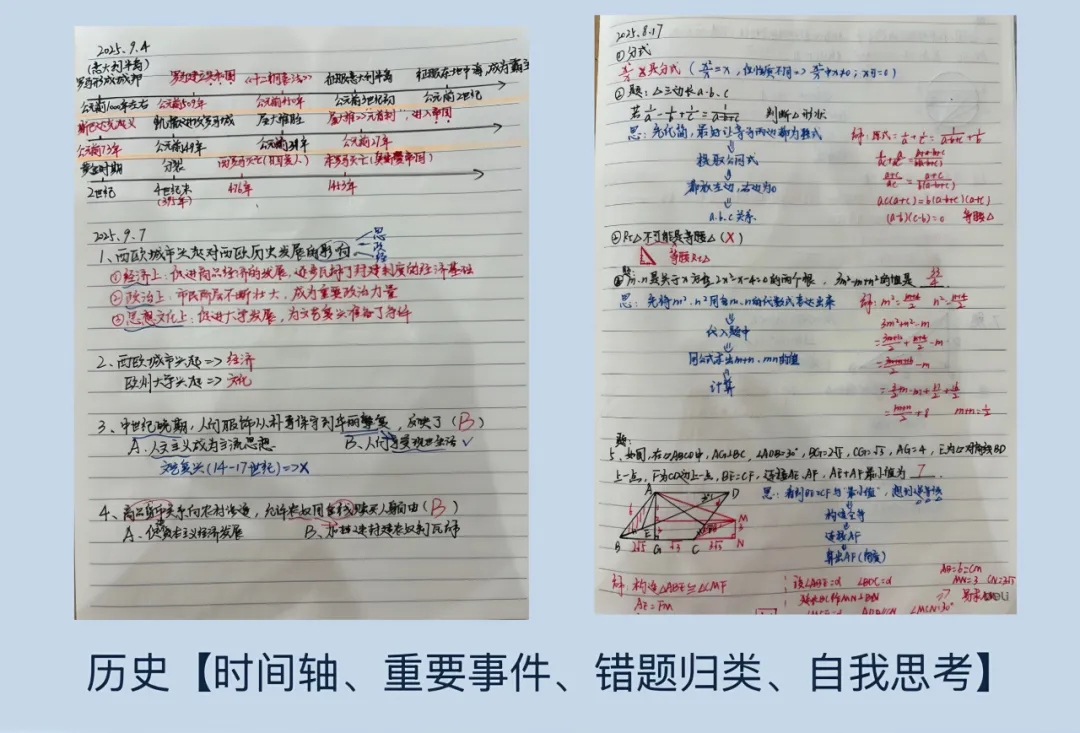 2025.9.4
(意大利半岛)
罗马形成城邦 罗马建立共和国 《十二铜表法》 征服意大利半岛 征服在地中海,成为霸主
公元前1000年左右 公元前509年 公元前450年 公元前3世纪初 公元前2世纪
斯巴达克起义 凯撒 屋大维胜 屋大维"元首制",进入帝国
公元前73年 公元前49年 公元前27年
黄金时期 分裂 西罗马灭亡(日耳曼人) 东罗马灭亡(奥斯曼帝国)
2世纪 4世纪末 476年 1453年
(395年)
2025.9.7
1、西欧城市兴起对西欧历史发展的影响
思
政
经
①经济上:促进商品经济的发展,逐步瓦解了封建制度的经济基础
②政治上:市民阶层不断壮大,成为重要政治力量
③思想文化上:促进大学发展,为文艺复兴准备了条件
2、西欧城市兴起=>经济
欧州大学兴起=>文化
3、中世纪晚期,人们服饰从朴素保守到华丽繁复,反映了(B)
A.人文主义成为主流思想 B、人们享受现世生活✓
文艺复兴(14-17世纪)=>X
4、商品货币关系向农村渗透,允许农奴用金钱赎买人身自由(B)
A、使资本主义经济发展 B、
2025.8.17
①分式
②题:△三边长a、b、c
若1/a-1/b+1/c=1/(a-b+c) 判断△形状
思:先化简,最好让等号两边都为整式
提取公因式
都放左边,右边为0
a.b.c关系
解:原式=1/a+1/c=1/(a-b+c)+1/b
(a+c)/ac=(a+c)/b(a-b+c)
ac(a+c)=b(a-b+c)(a+c)
(a-b)(c-b)=0 等腰△
③Rt△不可能是等腰△(X)
等腰Rt△
m、n是关于x方程2x²-x-4=0的两个根,3m²-m+n²的值是
思:先将m²、n²用含m、n的代数式表达出来
代入题中
用公式求出m+n、mn的值
计算
解:m²=(m+4)/2 n²=(n+4)/2
3m²+n²-m
=(m+n)/2+8 m+n=1/2
题:
5、如图,在▱ABCD中,AG⊥BC,∠ADB=30°,BG=2√3,CG=√3,AG=4,E为▱对角线BD
上一点,F为CD边上一点,BE=CF,连接AE、AF,AE+AF最小值为7.
思:看到BE=CF与"最小值",想到
构造全等
连接AF
算出AF(角度)
A D
M
E
B 2√3 G √3 C 3√3 N
解:构造△ABE≌△CMF
AE=FM
设∠ABE=α ∠BDC=α
AB=6=CM
MN=3 CN=3√3
∠MCN=30°
deli
历史【时间轴、重要事件、错题归类、自我思考】